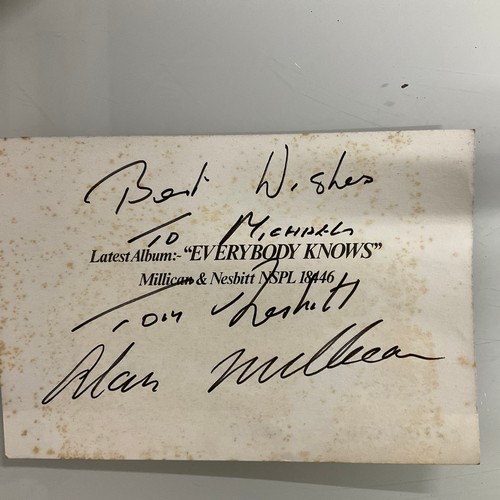 Best Wishes
To Michael
Latest Album:- "EVERYBODY KNOWS"
Millican & Nesbitt NSPL 18446
Tom Nesbitt
Alan Millican